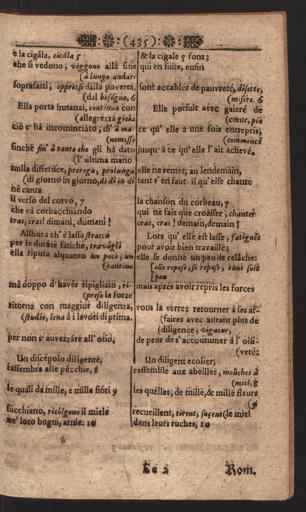 (435)
e la cigála, cicála 5
che si vedono; véggono allà fine
(à lungo andar
soprafatti, oppressi dalla povertà.
(dal bisógno, 6
Ella porta innanzi, contínua con
(allegrezzà gioia
ciò c' hà incominciato, ch' à ma-
(nomisso
finchè fin' à tanto che gli hà dato
(l'ultima mano.
nulla differisce, proroga, prolunga
(di giorno in giorno, di dì in dì
hè canta
il verso del corvò, 7
che vá corbacchiando
cras, cras! dimani, dumani!
Allhora ch' è lassa stracca
per le duráte fatiche, travágli
ella riposa alquanto un poco, un
(tantino
mà doppo d'havér ripigliato, ri-
(preso le forze
ritorna con maggior diligenza,
(studio, lena à i lavóri di prima.
per non s' auvezzáre all' otio,
Un discépolo diligente,
rassembra alle pécchie, 8
le quali da mille, e mille fióri 9
succhiano, ricólgono il miele
ne' loro bugni, arnie. 10
& la cigale 5 sont;
qui en suite, ensin
sont accablez de pauvreté, disette,
(misère. 6
Elle porsuit avec gaitré de
(cœur, piè
ce qu' elle a une fois entrepris,
(commencé
jusqu' à ce qu' elle l'ait achevé,
elle ne remet, au lendemain,
tant s'en faut-il qu'elle chante
la chanson du corbeau, 7
qui ne fait que croásser, chanter
cras, cras! demain, demain!
Lors qu' elle est lasse, fatiguée
pour avoir bien travaillé;
elle se donne un peu de relâche:
(elle repose, se repose, tant soit
peu
mais aprés avoir repris les forces
vous la verrez retourner à ses af-
(faires avec autant plus de
(diligence, vigueur,
de peur de s'accoutumer à l'oisi-
(veté:
Un diligent ecolier,
ressemble aux abeilles, mouches à
(miel, 8
les quelles, de mille, & mille fleurs
(9
recueillent, tirent, suçent (le miel
dans leurs ruches, 10
Ee 2
Rom.